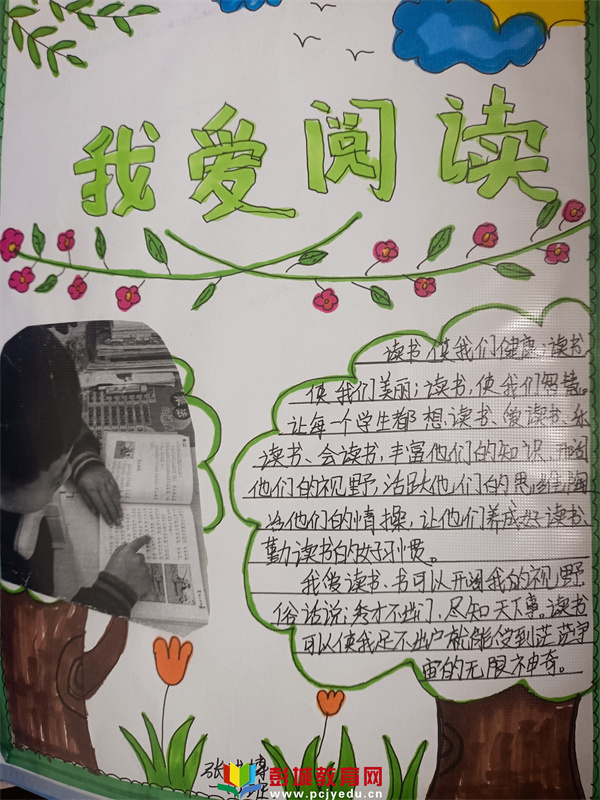 我爱阅读
读书使我们健康;读书
使我们美丽;读书,使我们智慧。
让每一个学生都想读书、爱读书、乐
读书、会读书,丰富他们的知识,开阔
他们的视野,活跃他们的思维,陶
冶他们的情操,让他们养成好读书、
勤读书的好习惯。
我爱读书、书可以开阔我的视野
俗话说:秀才不出门,尽知天下事。读书
可以使我足不出户就能领到茫茫宇
宙的无限神奇。
张 博
班
彭城教育网
www.pcjyedu.cn